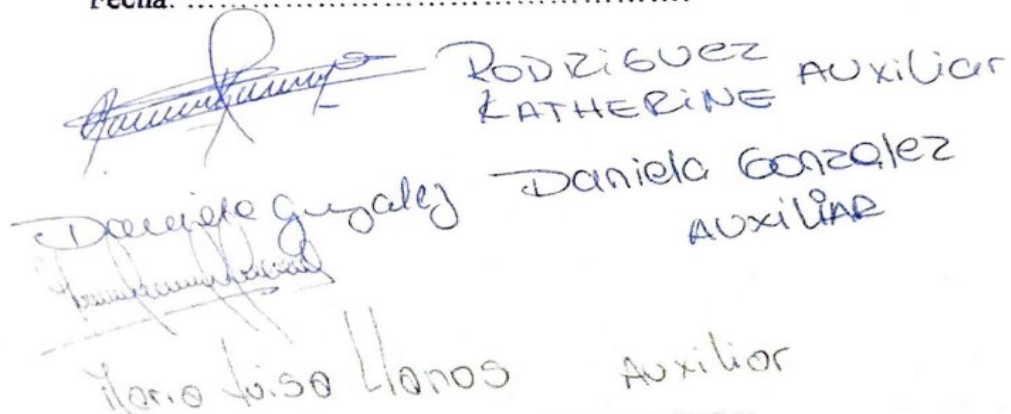 Fecha: ..............................................
RODRIGUEZ AUXiLiar
KATHERINE
Daniela Gonzalez Daniela Gonzalez
AUXiLiAR
Maria Luisa Llanos Auxiliar